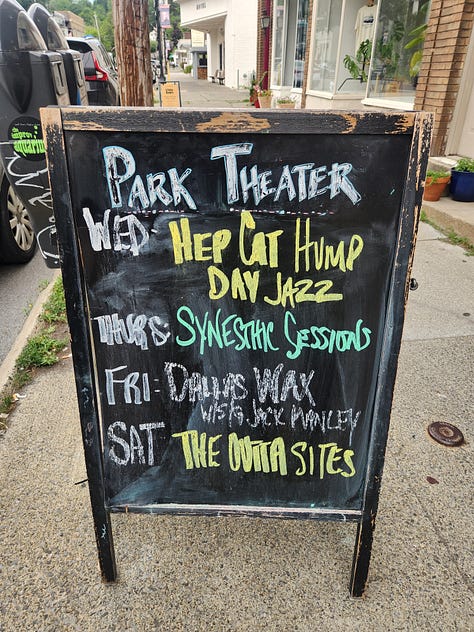 the
improv
aquarium
PARK THEATER
WED: HEP CAT HUMP
DAY JAZZ
THURS: SYNESTHIC SESSIONS
FRI: DALLAS WAX
W/S/G JACK MANLEY
SAT THE OUTTA SITES